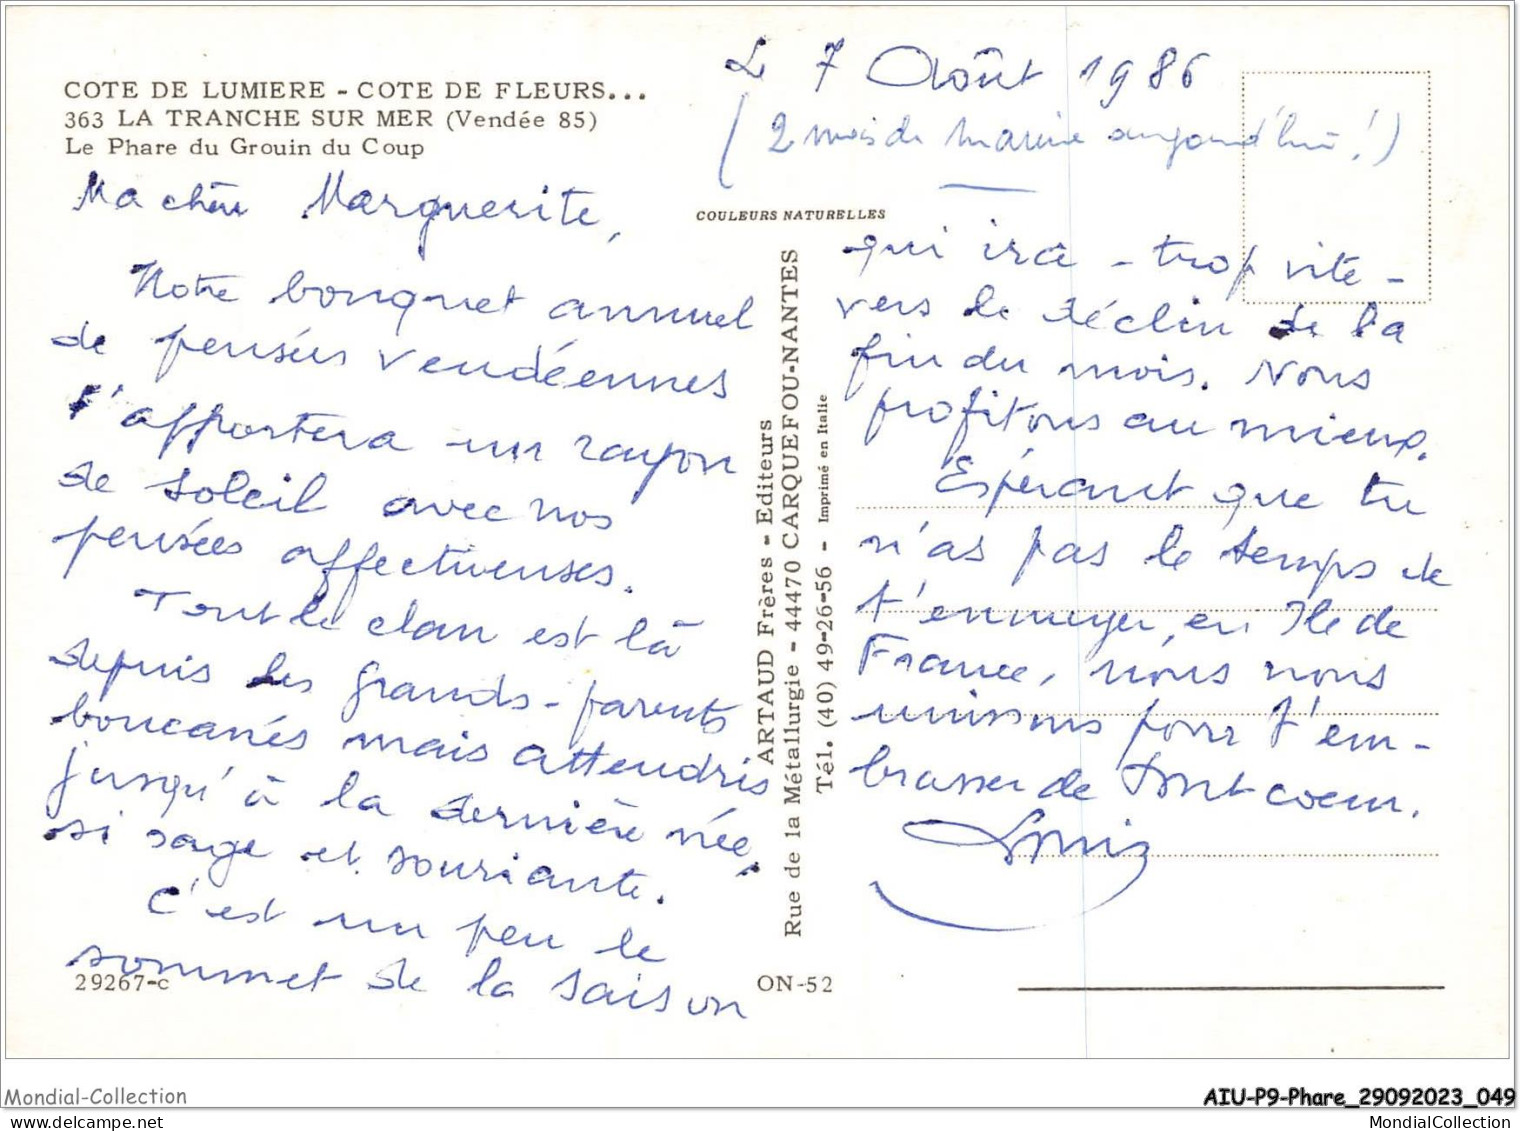 COTE DE LUMIERE - COTE DE FLEURS...
363 LA TRANCHE SUR MER (Vendée 85)
Le Phare du Grouin du Coup
Le 7 Août 1986
(2 mois de marine aujourd'hui !)
Ma chère Marguerite,
Notre bouquet annuel
de pensées vendéennes
t'apportera un rayon
de soleil avec nos
pensées affectueuses.
Tout le clan est là
depuis les grands-parents
boucanés mais attendris
jusqu'à la dernière née,
si sage et souriante.
C'est un peu le
sommet de la saison
29267-c
COULEURS NATURELLES
ARTAUD Frères - Editeurs
Rue de la Métallurgie - 44470 CARQUEFOU-NANTES
Tél. (40) 49-26-56 - Imprimé en Italie
ON-52
qui ira - trop vite -
vers le déclin de la
fin du mois. Nous
profitons au mieux.
Espérant que tu
n'as pas le temps de
t'ennuyer, en Ile de
France, nous nous
unissons pour t'em-
brasser de tout coeur.
Mondial-Collection
AIU-P9-Phare_29092023_049
MondialCollection